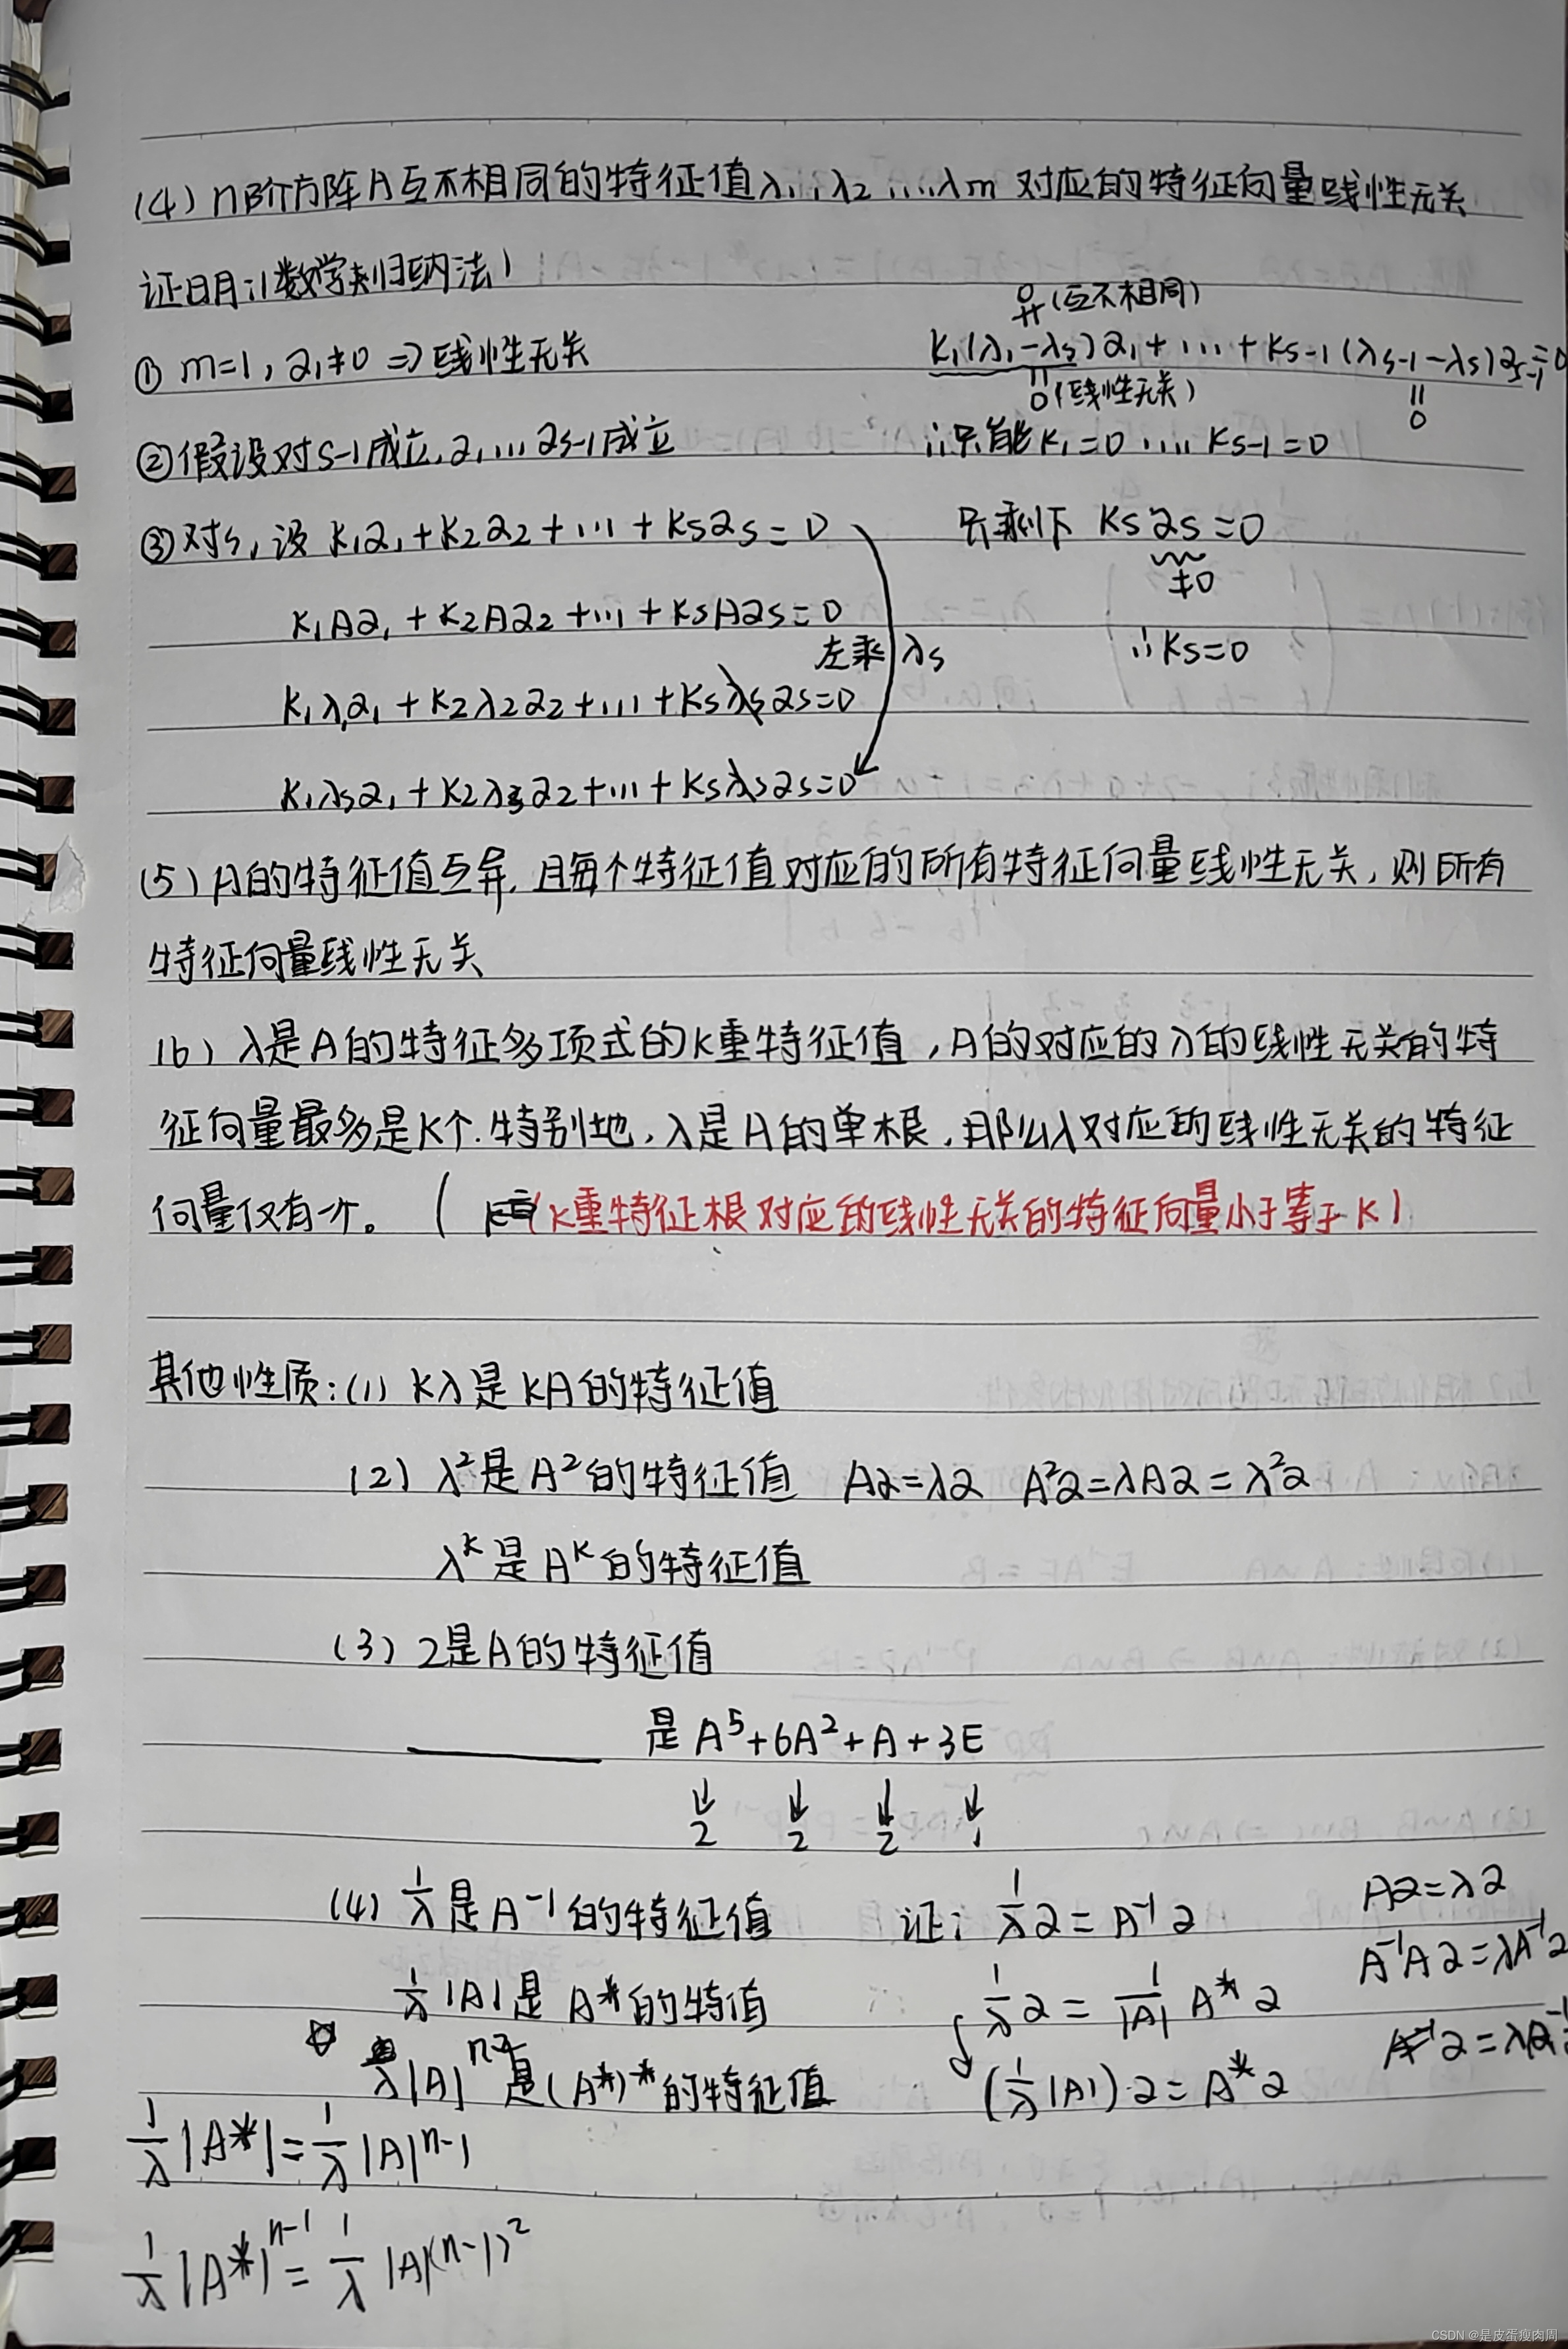 (4) n阶方阵A互不相同的特征值λ₁,λ₂...λm 对应的特征向量线性无关
证明:(数学归纳法)
① m=1, α₁≠0 ⇒ 线性无关
② 假设对s-1成立, α₁...αs-1成立
③ 对s, 设 k₁α₁+k₂α₂+...+ksαs=0
k₁Aα₁+k₂Aα₂+...+ksAαs=0
左乘 λs
k₁λ₁α₁+k₂λ₂α₂+...+ksλsαs=0
k₁λsα₁+k₂λsα₂+...+ksλsαs=0
0 ≠ (互不相同)
k₁(λ₁-λs)α₁+...+ks-1(λs-1-λs)αs-1=0
= 0 (线性无关) = 0
∴只能k₁=0 .... ks-1=0
只剩下 ksαs=0
≠0
∴ks=0
(5) A的特征值互异,且每个特征值对应的所有特征向量线性无关,则所有
特征向量线性无关
(6) λ是A的特征多项式的k重特征值,A的对应的λ的线性无关的特
征向量最多是k个.特别地,λ是A的单根,那么λ对应的线性无关的特征
向量仅有一个。 ( (k重特征根对应的线性无关的特征向量小于等于k)
其他性质:(1) kλ是kA的特征值
(2) λ²是A²的特征值 Aα=λα A²α=λAα=λ²α
λᵏ是Aᵏ的特征值
(3) 2是A的特征值
______ 是 A⁵+6A²+A+3E
↓ ↓ ↓ ↓
2 2 2 1
(4) 1/λ是A⁻¹的特征值 证: 1/λ α=A⁻¹α
Aα=λα
A⁻¹Aα=λA⁻¹α
1/λ|A|是 A*的特值 1/λ α = 1/|A| A*α
☆ λ|A|ⁿ⁻²是(A*)*的特征值 (1/λ|A|)·α=A*α
1/λ|A*|=1/λ|A|ⁿ⁻¹
1/λ|A*|ⁿ⁻¹=1/λ|A|⁽ⁿ⁻¹⁾²
CSDN @是皮蛋瘦肉周